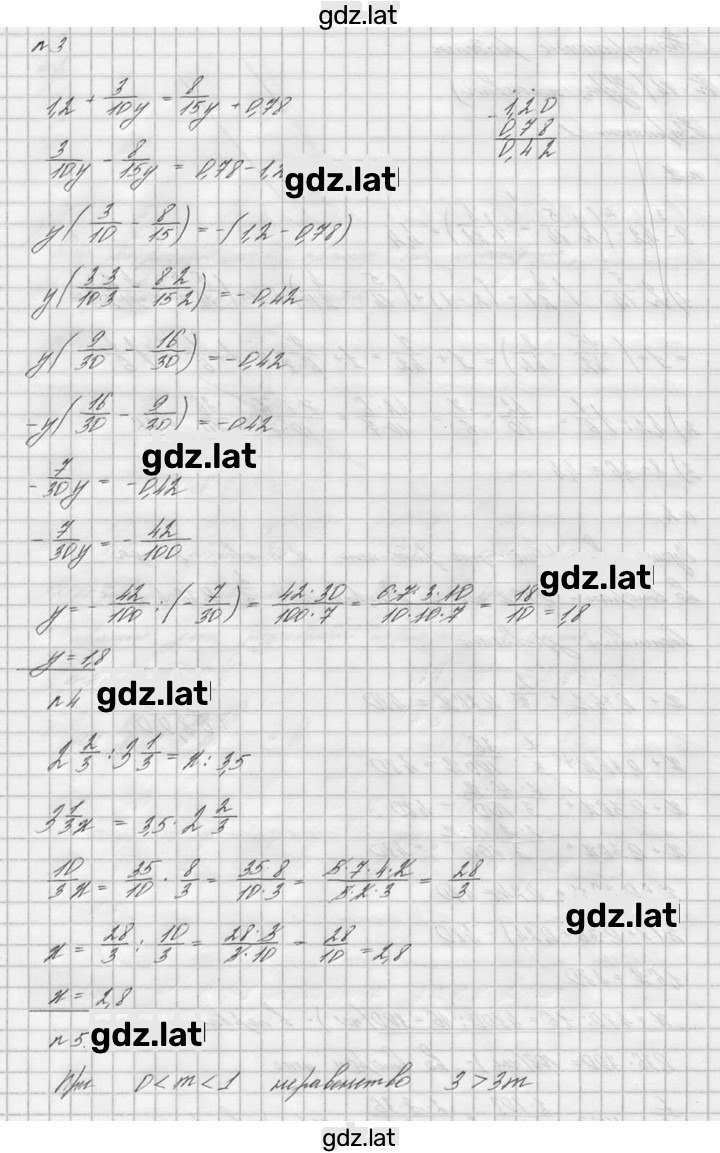 gdz.lat
n 3
1,2 + 3/10 y = 8/15 y + 0,78
3/10 y − 8/15 y = 0,78 − 1,2
− 1,20
0,78
0,42
gdz.lat
y(3/10 − 8/15) = −(1,2 − 0,78)
y(3·3/10·3 − 8·2/15 2) = −0,42
y(9/30 − 16/30) = −0,42
−y(16/30 − 9/30) = −0.42
gdz.lat
−7/30 y = −0,42
−7/30 y = −42/100
gdz.lat
y = −42/100 : (−7/30) = 42·30/100·7 = 6·7·3·10/10·10·7 = 18/10 = 1,8
y = 1,8
gdz.lat
n 4
2 2/3 : 3 1/3 = x : 3,5
3 1/3 x = 3,5 · 2 2/3
10/3 x = 35/10 · 8/3 = 35·8/10·3 = 5·7·4·2/5·2·3 = 28/3
gdz.lat
x = 28/3 : 10/3 = 28·3/3·10 = 28/10 = 2,8
x = 2,8
n 5.
gdz.lat
При 0 < m < 1 неравенство 3 > 3m
gdz.lat